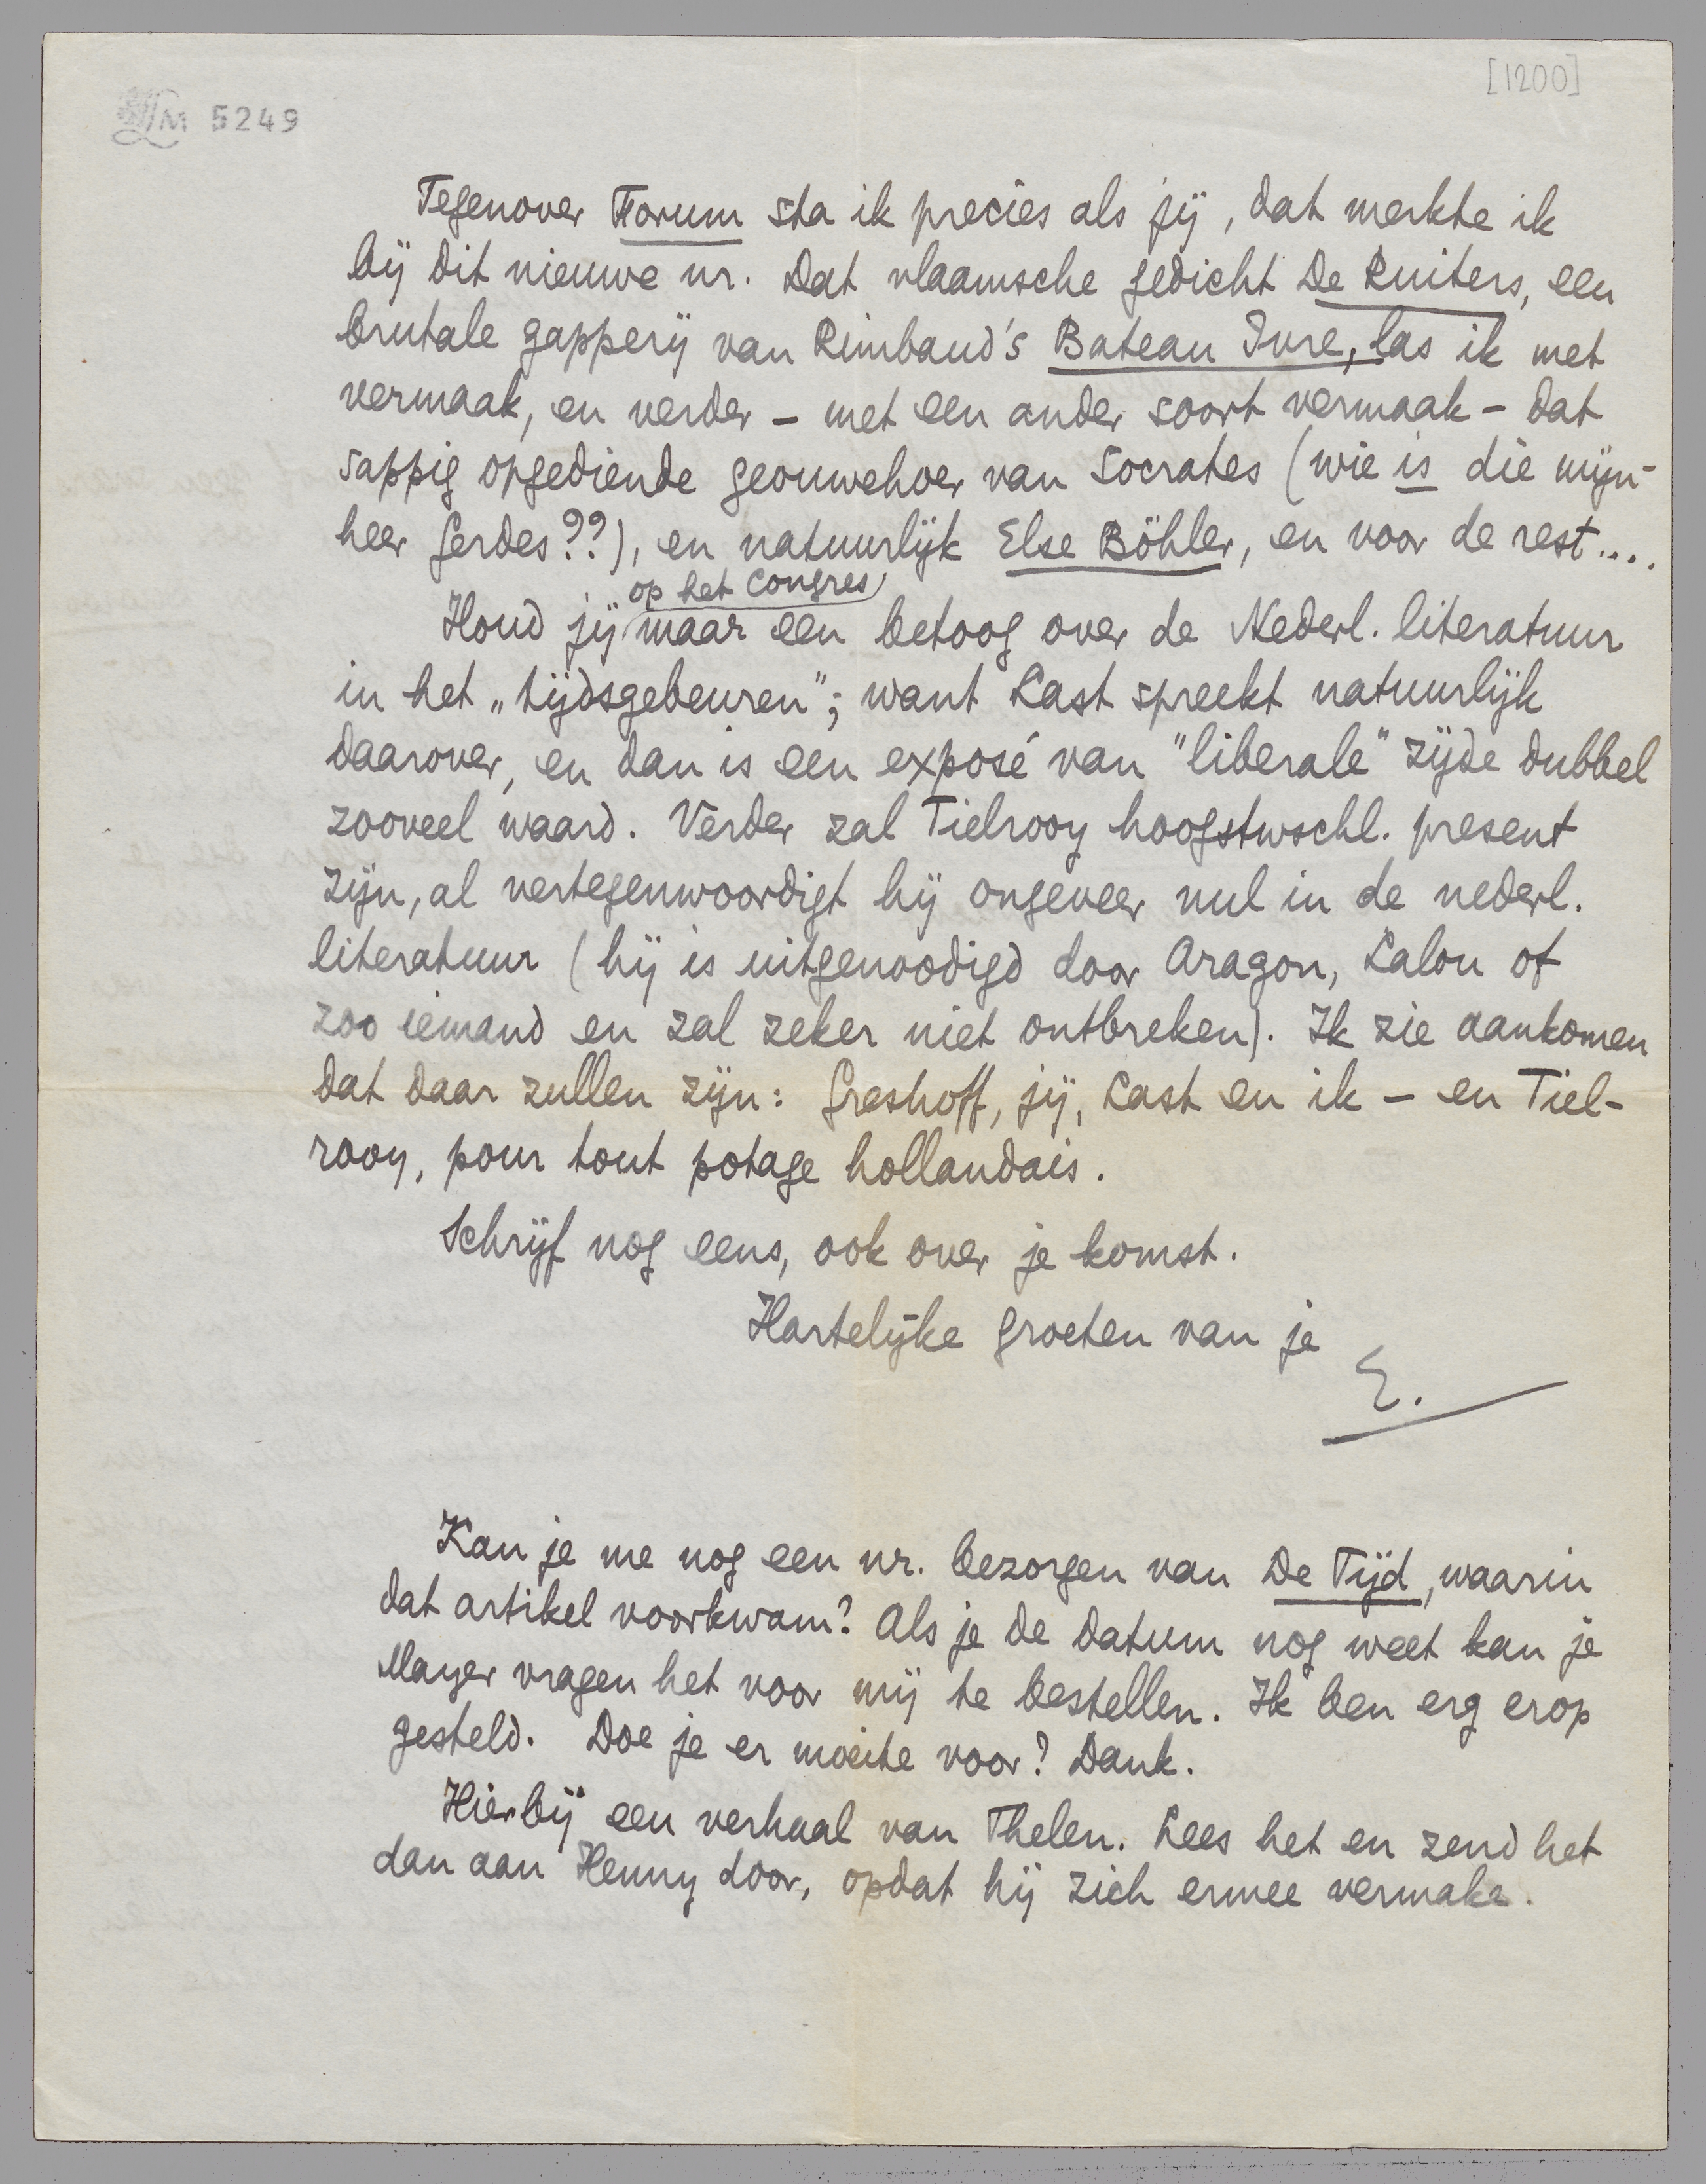 [1200]
LM 5249
Tegenover Forum sta ik precies als jij, dat merkte ik
bij dit nieuwe nr. Dat vlaamsche gedicht De Ruiters, een
brutale gapperij van Rimbaud's Bateau Ivre, las ik met
vermaak, en verder – met een ander soort vermaak – dat
sappig opgediende geouwehoer van Socrates (wie is die mijn-
heer Gerdes??), en natuurlijk Else Böhler, en voor de rest....
op het congres
Houd jij maar een betoog over de Nederl. literatuur
in het „tijdsgebeuren"; want Last spreekt natuurlijk
daarover, en dan is een exposé van "liberale" zijde dubbel
zooveel waard. Verder zal Tielrooy hoogstwschl. present
zijn, al vertegenwoordigt hij ongeveer nul in de nederl.
literatuur (hij is uitgenoodigd door Aragon, Lalou of
zoo iemand en zal zeker niet ontbreken). Ik zie aankomen
dat daar zullen zijn: Greshoff, jij, Last en ik – en Tiel-
rooy, pour tout potage hollandais.
Schrijf nog eens, ook over je komst.
Hartelijke groeten van je
E.
Kan je me nog een nr. bezorgen van De Tijd, waarin
dat artikel voorkwam? Als je de datum nog weet kan je
Mayer vragen het voor mij te bestellen. Ik ben erg erop
gesteld. Doe je er moeite voor? Dank.
Hierbij een verhaal van Thelen. Lees het en zend het
dan aan Henny door, opdat hij zich ermee vermake.